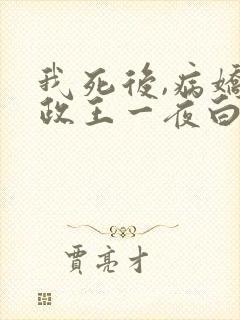 我死後,病嬌
政王一夜白
賈亮才